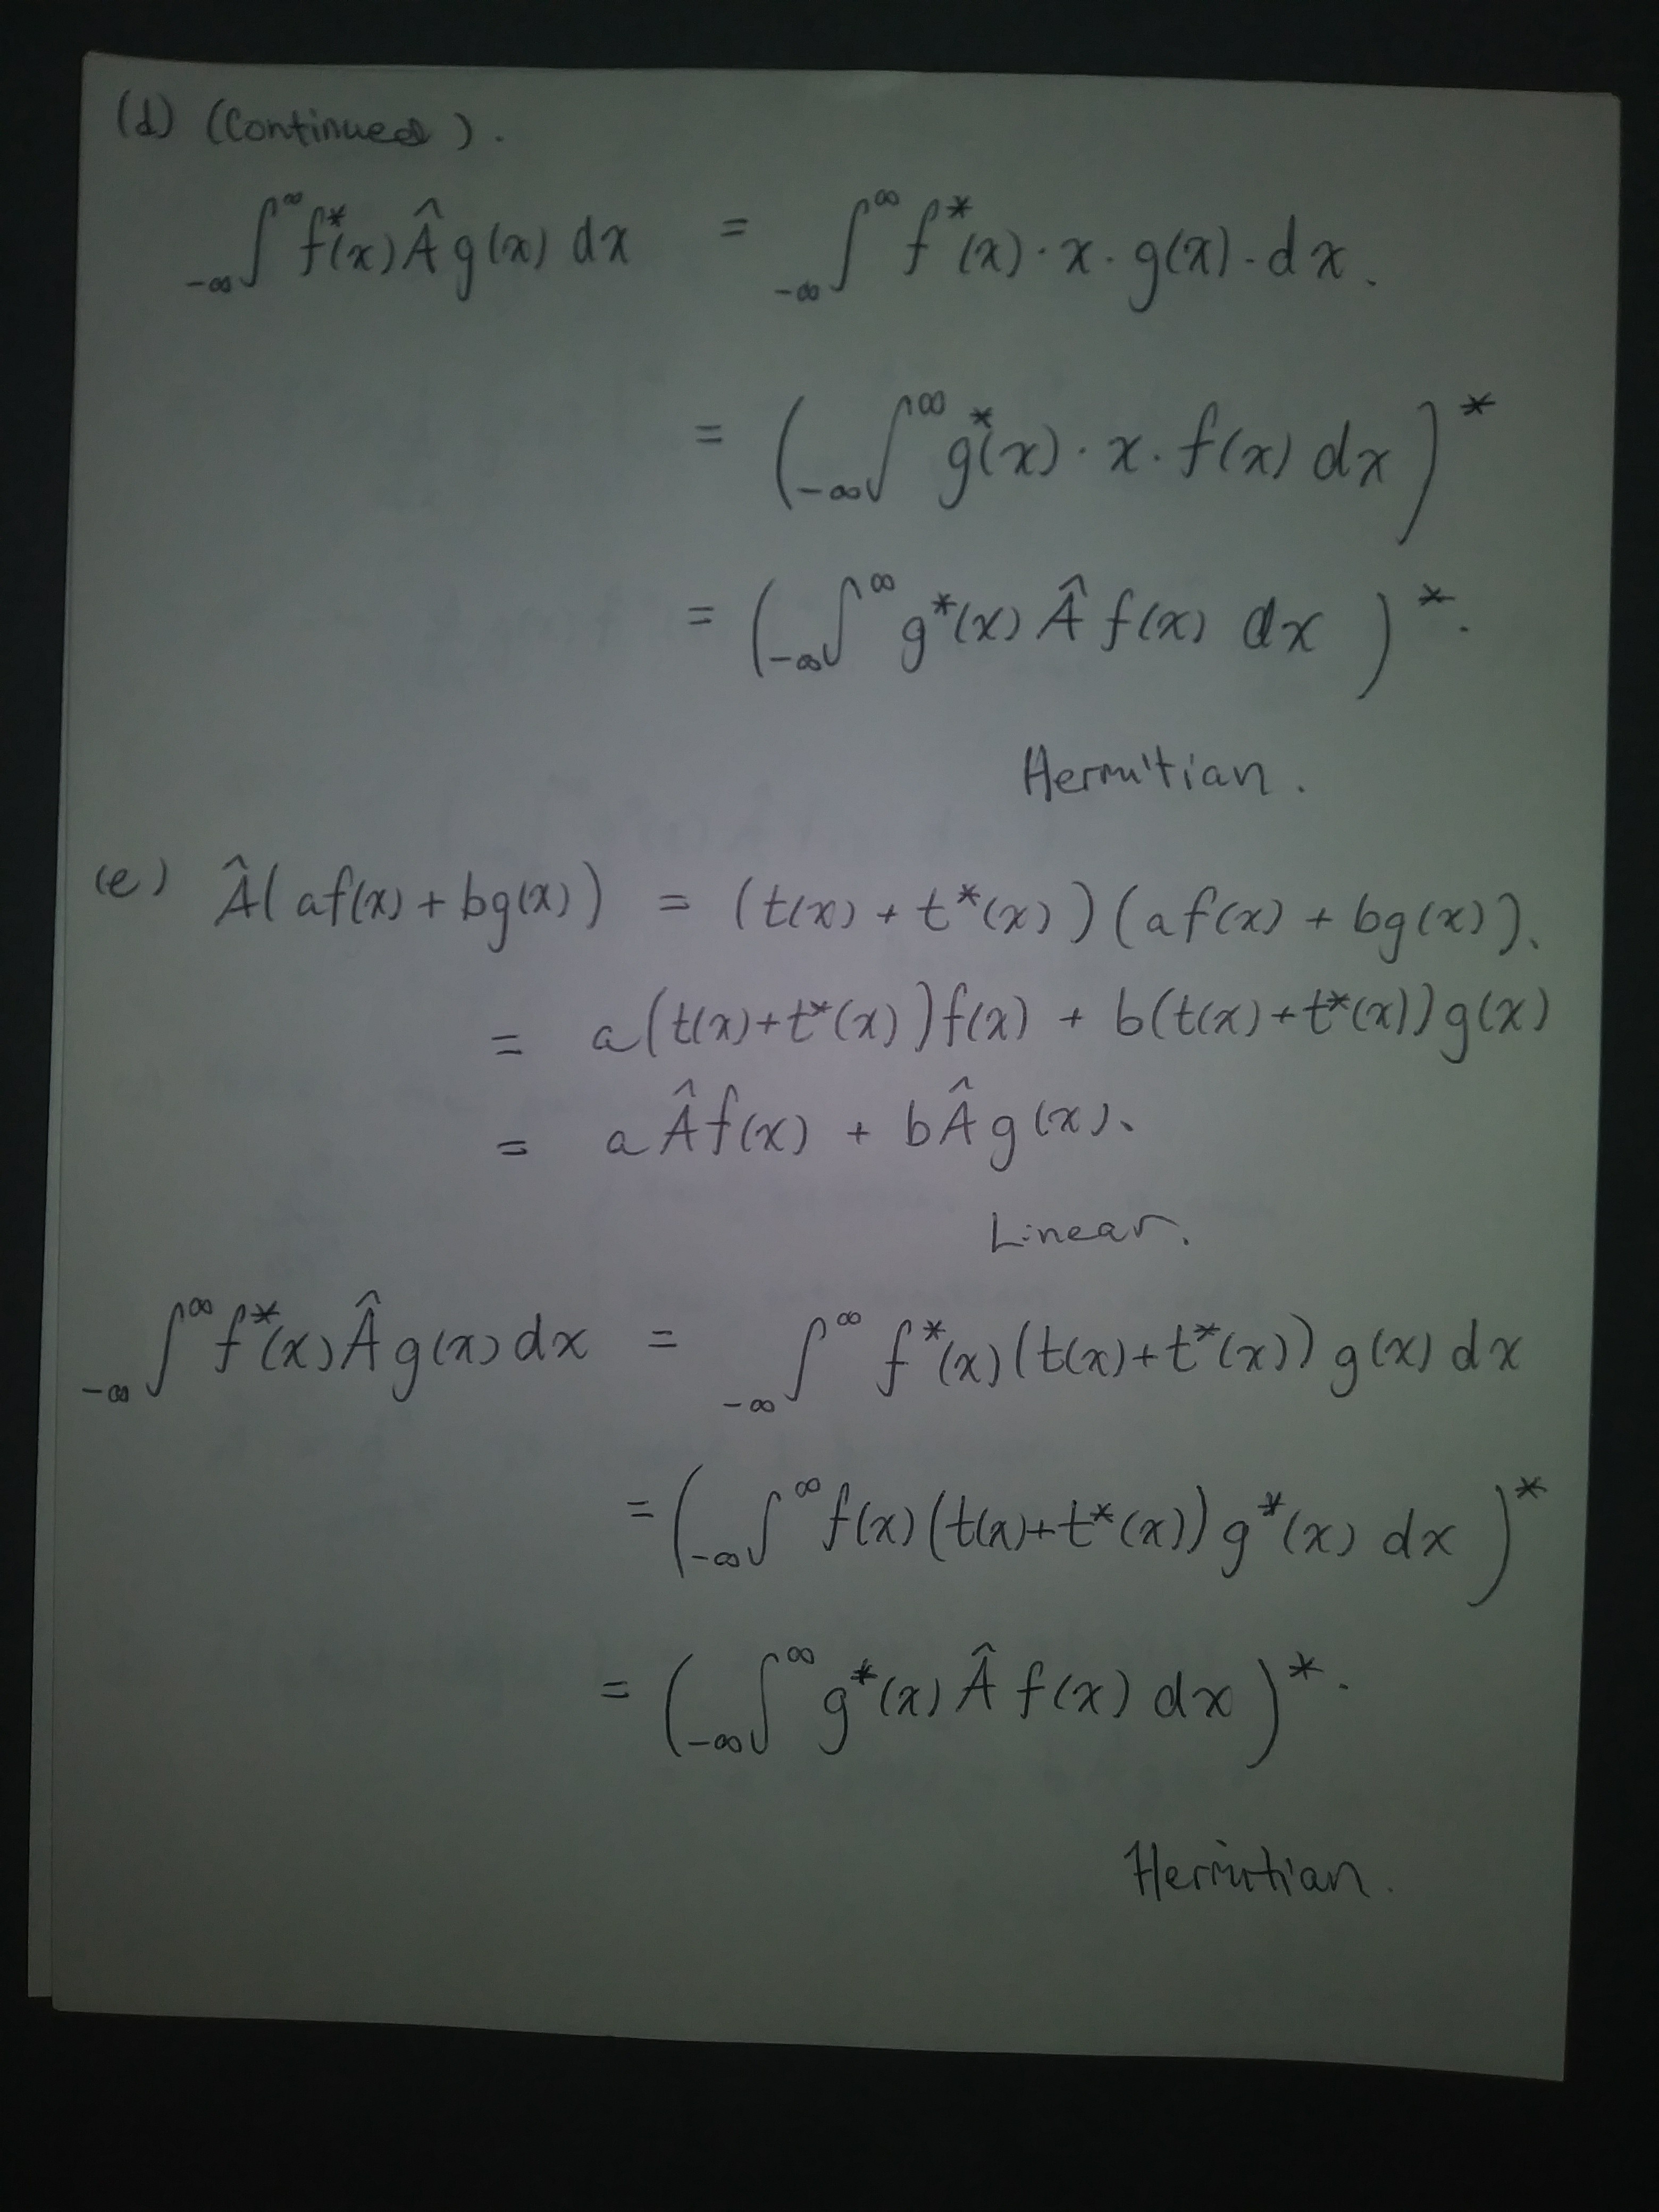 (d) (Continued).
₋∞∫^∞ f*(x) Â g(x) dx = ₋∞∫^∞ f*(x) · x · g(x) · dx.
= (₋∞∫^∞ g*(x) · x · f(x) dx)*
= (₋∞∫^∞ g*(x) Â f(x) dx)*.
Hermitian.
(e) Â(af(x) + bg(x)) = (t(x) + t*(x))(af(x) + bg(x)).
= a(t(x)+t*(x))f(x) + b(t(x)+t*(x))g(x)
= aÂf(x) + bÂg(x).
Linear.
₋∞∫^∞ f*(x) Â g(x) dx = ₋∞∫^∞ f*(x)(t(x)+t*(x)) g(x) dx
= (₋∞∫^∞ f(x)(t(x)+t*(x)) g*(x) dx)*
= (₋∞∫^∞ g*(x) Â f(x) dx)*.
Hermitian.